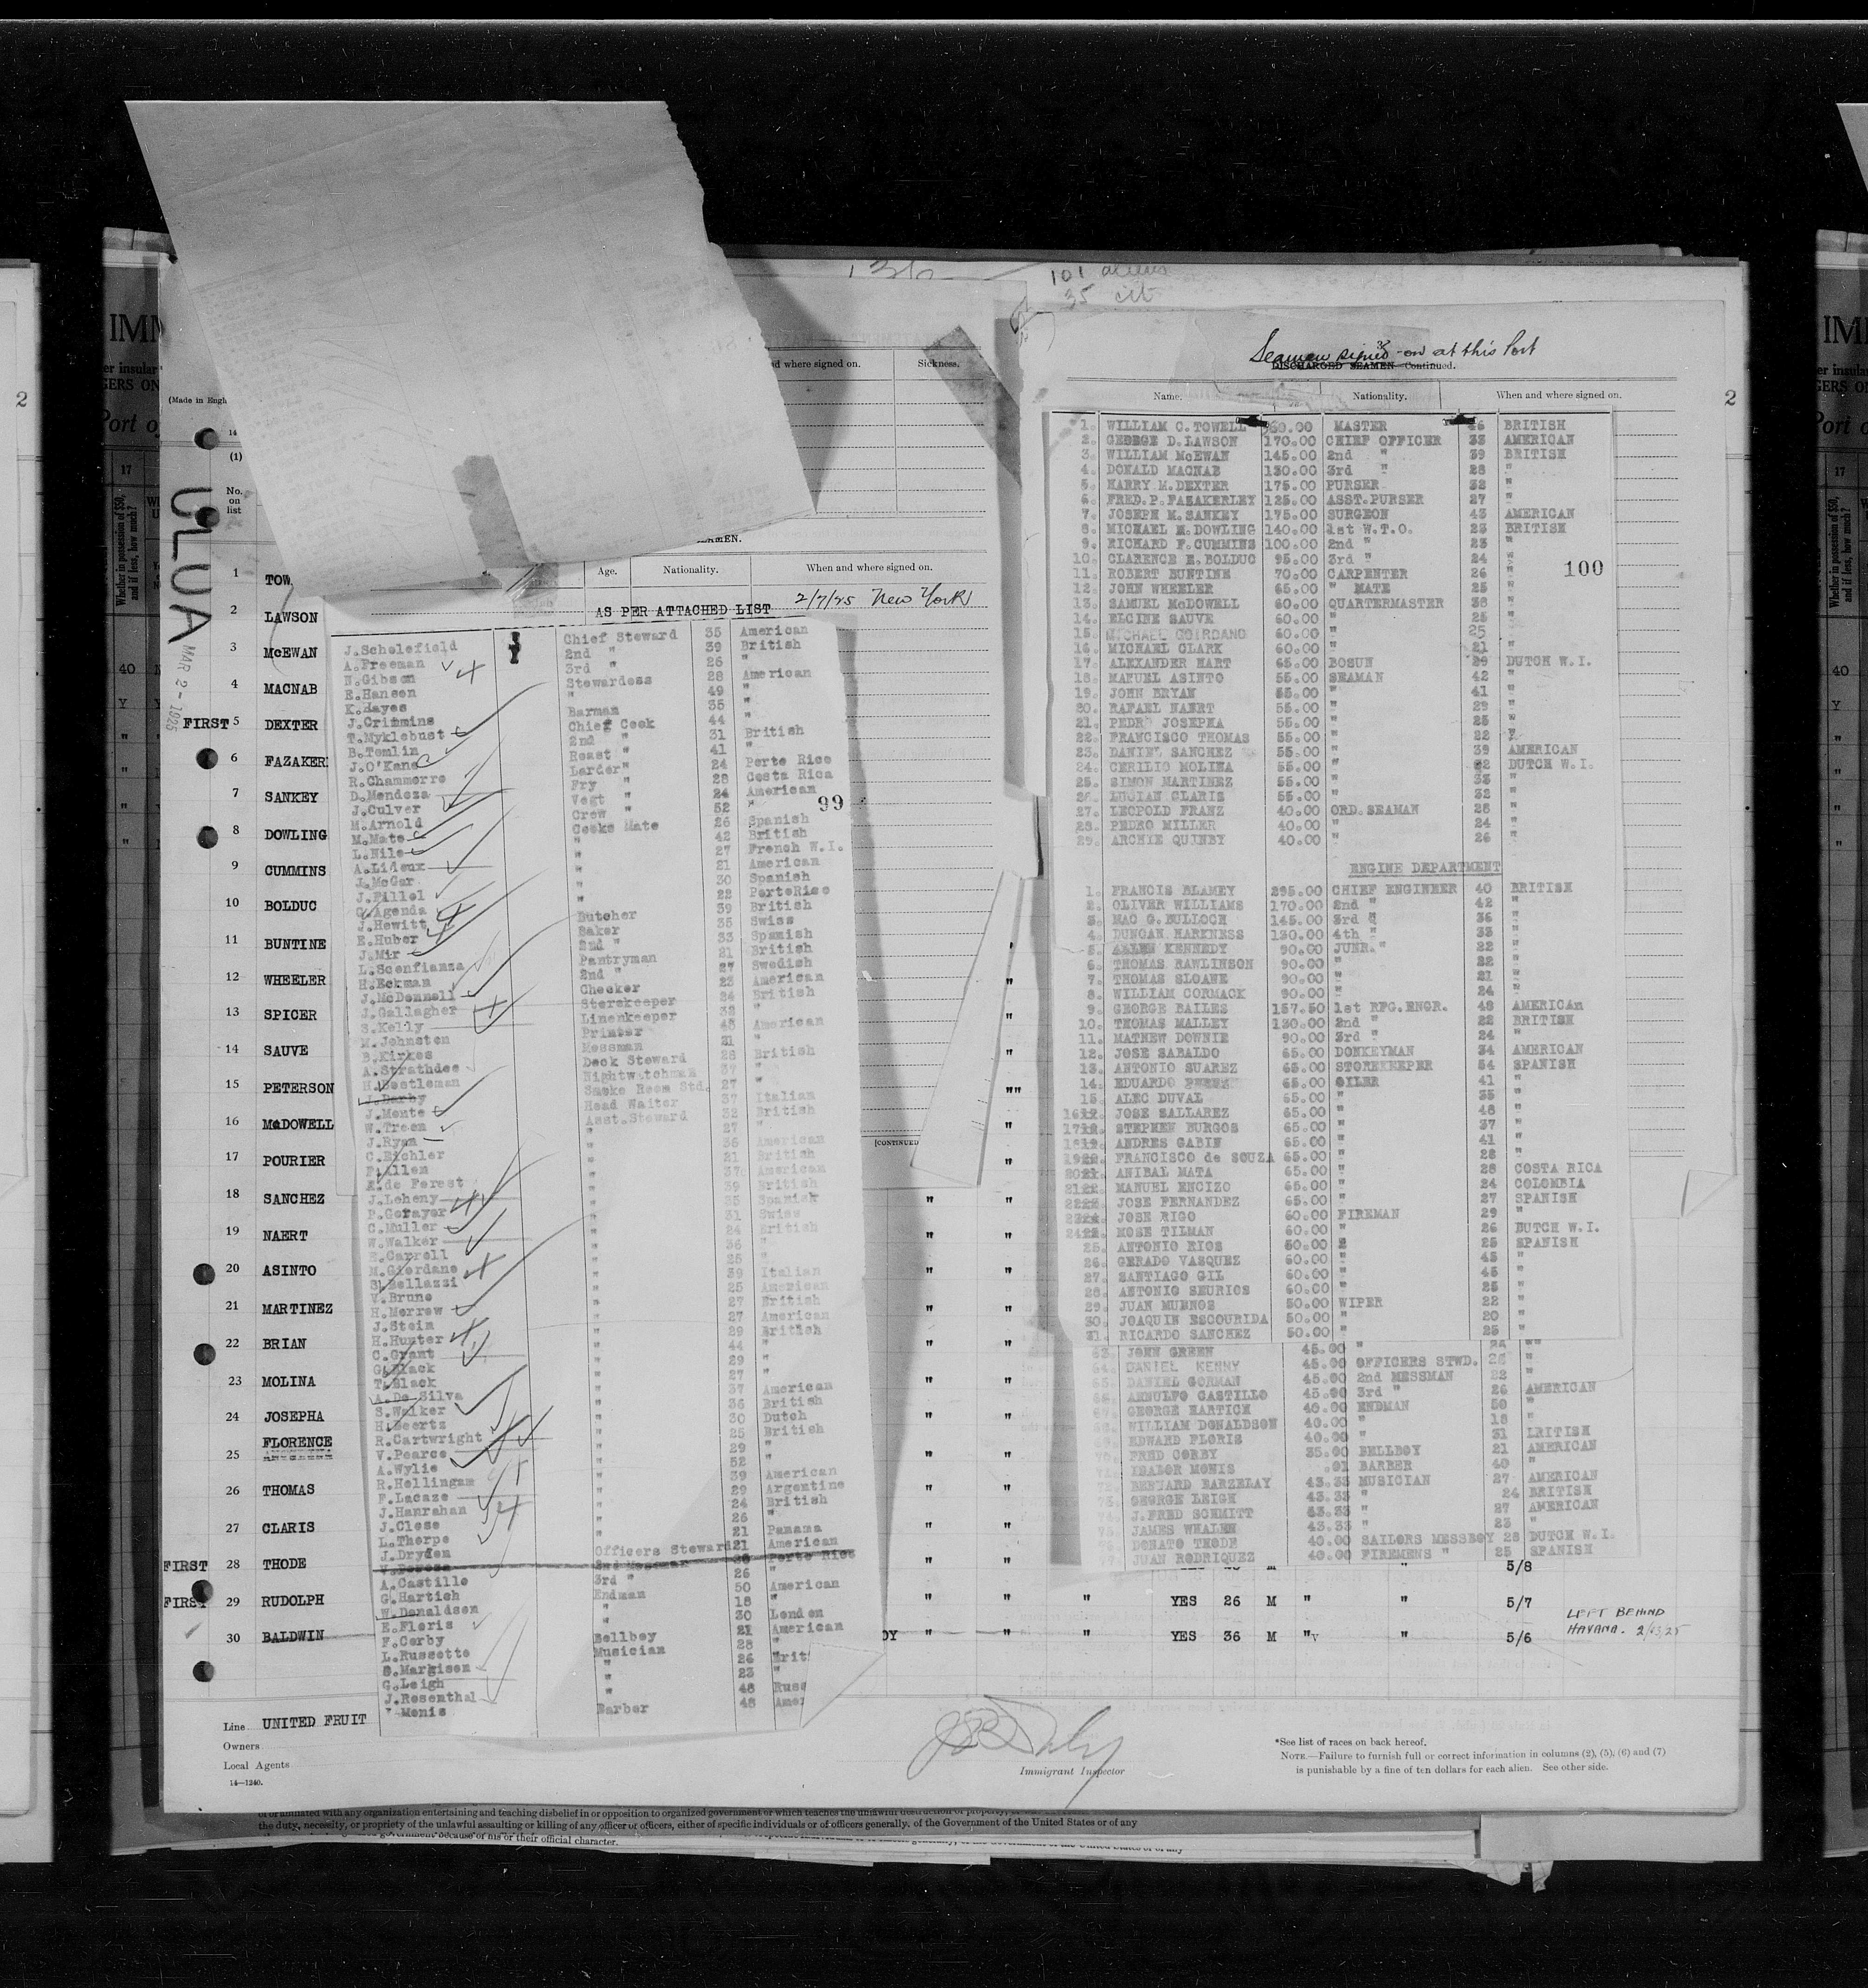 101 aliens
35 cit
IMM
er insular
GERS ON
Port o
17
Whether in possession of $50, and if less, how much?
40
Y
(Made in Engl
14
(1)
No. on list
ULUA
MAR 2 - 1925
1 TOW
2 LAWSON
3 McEWAN
4 MACNAB
FIRST 5 DEXTER
6 FAZAKER
7 SANKEY
8 DOWLING
9 CUMMINS
10 BOLDUC
11 BUNTINE
12 WHEELER
13 SPICER
14 SAUVE
15 PETERSON
16 McDOWELL
17 POURIER
18 SANCHEZ
19 NAERT
20 ASINTO
21 MARTINEZ
22 BRIAN
23 MOLINA
24 JOSEPHA
25 FLORENCE
26 THOMAS
27 CLARIS
FIRST 28 THODE
FIRST 29 RUDOLPH
30 BALDWIN
Line UNITED FRUIT
Owners
Local Agents
14—1240.
d where signed on. Sickness.
Age. Nationality. When and where signed on.
AS PER ATTACHED LIST 2/7/25 New York
J.Scholefield Chief Steward 35 American
A.Freeman 2nd " 39 British
N.Gibson 3rd " 26 "
E.Hansen Stewardess 28 American
K.Hayes " 49 "
J.Crimmins Barman 35 "
T.Myklebust Chief Cook 44 "
B.Tomlin 2nd " 31 British
J.O'Kane Roast " 41 "
R.Chammorro Larder" 24 Porto Rico
D.Mendoza Fry " 28 Costa Rica
J.Culver Vegt " 24 American
M.Arnold Crew " 52 "
99
M.Mate Cooks Mate 26 Spanish
L.Nile " 42 British
A.Lideux " 27 French W.I.
J.McGar " 21 American
J.Fillol " 30 Spanish
G.Agenda " 22 PortoRico
J.Hewitt Butcher 39 British
E.Huber Baker 35 Swiss
J.Mir 2nd " 33 Spanish
L.Sconfianza Pantryman 21 British
H.Eckman 2nd " 27 Swedish
J.McDonnell Checker 23 American
J.Gallagher Storekeeper 24 British
S.Kelly Linenkeeper 32 "
M.Johnston Printer 48 American
B.Kirkes Messman 21 "
A.Strathdee Deck Steward 28 British
H.Bestleman Nightwatchman 37 "
J.Darby Smoke Room Std. 27 "
J.Monte Head Waiter 37 Italian
W.Treen Asst.Steward 32 British
J.Ryan " 27 "
C.Eichler " 36 American
F.Allen " 21 British
A.de Forest " 37 American
J.Leheny " 39 British
P.Gorayer " 35 Spanish
C.Muller " 31 Swiss
W.Walker " 24 British
E.Carroll " 36 "
M.Giordano " 25 "
S.Bellazzi " 39 Italian
V.Bruno " 25 American
H.Morrow " 27 British
J.Stein " 27 American
H.Hunter " 29 British
C.Grant " 44 "
G.Black " 29 "
T.Black " 27 "
A.De Silva " 37 American
S.Walker " 36 British
H.Geertz " 30 Dutch
R.Cartwright " 25 British
V.Pearce " 29 "
A.Wylie " 52 "
R.Hollingam " 39 American
F.Lacaze " 29 Argentine
J.Hanrahan " 24 British
J.Close " 26 "
L.Thorpe " 21 Panama
J.Dryden Officers Steward 21 American
2nd Messman Porto Rico
A.Castillo 3rd " 26 "
G.Hartich Endman 50 American
W.Donaldson " 18 "
E.Floris " 30 London
F.Corby Bellboy 21 American
L.Russotto Musician 28 "
S.Margisen " 26 Brit
G.Leigh " 23 "
J.Rosenthal " 48 Russ
Monis Barber 48 Amer
[CONTINUED
Seamen signed-on at this Port
DISCHARGED SEAMEN—Continued.
Name. Nationality. When and where signed on.
2
1. WILLIAM C.TOWELL 360.00 MASTER 46 BRITISH
2. GEORGE D.LAWSON 170.00 CHIEF OFFICER 33 AMERICAN
3. WILLIAM McEWAN 145.00 2nd " 39 BRITISH
4. DONALD MACNAB 130.00 3rd " 28 "
5. HARRY M.DEXTER 175.00 PURSER 32 "
6. FRED.P.FAZAKERLEY 125.00 ASST.PURSER 27 "
7. JOSEPH M.SANKEY 175.00 SURGEON 43 AMERICAN
8. MICHAEL M.DOWLING 140.00 1st W.T.O. 23 BRITISH
9. RICHARD F.CUMMINS 100.00 2nd " 23 "
10. CLARENCE E.BOLDUC 95.00 3rd " 24 "
11. ROBERT BUNTINE 70.00 CARPENTER 26 "
100
12. JOHN WHEELER 65.00 " MATE 25 "
13. SAMUEL McDOWELL 60.00 QUARTERMASTER 38 "
14. ELCINE SAUVE 60.00 " 25 "
15. MICHAEL GOIRDANO 60.00 " 25 "
16. MICHAEL CLARK 60.00 " 21 "
17. ALEXANDER HART 65.00 BOSUN 29 DUTCH W.I.
18. MANUEL ASINTO 55.00 SEAMAN 42 "
19. JOHN BRYAN 55.00 " 41 "
20. RAFAEL NAERT 55.00 " 29 "
21. PEDRO JOSEPHA 55.00 " 25 "
22. FRANCISCO THOMAS 55.00 " 22 "
23. DANIEL SANCHEZ 55.00 " 39 AMERICAN
24. CERILIO MOLINA 55.00 " 32 DUTCH W.I.
25. SIMON MARTINEZ 55.00 " 33 "
26. LUCIAN CLARIS 55.00 " 32 "
27. LEOPOLD FRANZ 40.00 ORD.SEAMAN 28 "
28. PEDRO MILLER 40.00 " 24 "
29. ARCHIE QUINBY 40.00 " 26 "
ENGINE DEPARTMENT
1. FRANCIS BLAMEY 295.00 CHIEF ENGINEER 40 BRITISH
2. OLIVER WILLIAMS 170.00 2nd " 42 "
3. MAC G.BULLOCH 145.00 3rd " 36 "
4. DUNCAN HARKNESS 130.00 4th " 33 "
5. ALLEN KENNEDY 90.00 JUNR." 22 "
6. THOMAS RAWLINSON 90.00 " 22 "
7. THOMAS SLOANE 90.00 " 21 "
8. WILLIAM CORMACK 90.00 " 24 "
9. GEORGE BAILEZ 157.50 1st RFG.ENGR. 48 AMERICAn
10. THOMAS MALLEY 130.00 2nd " 22 BRITISH
11. MATHEW DOWNIE 90.00 3rd " 24 "
12. JOSE SABALDO 65.00 DONKEYMAN 34 AMERICAN
13. ANTONIO SUAREZ 65.00 STOREKEEPER 54 SPANISH
14. EDUARDO PEREZ 65.00 OILER 41 "
15. ALEC DUVAL 65.00 " 35 "
16 JOSE SALLAREZ 65.00 " 48 "
17 STEPHEN BURGOS 65.00 " 37 "
18 ANDRES GABIN 65.00 " 41 "
19 FRANCISCO de SOUZA 65.00 " 28 "
20 ANIBAL MATA 65.00 " 28 COSTA RICA
21 MANUEL ENCIZO 65.00 " 24 COLOMBIA
22 JOSE FERNANDEZ 65.00 " 27 SPANISH
23 JOSE RIGO 60.00 FIREMAN 29 "
24 MOSE TILMAN 60.00 " 26 DUTCH W.I.
25. ANTONIO RIOS 60.00 25 SPANISH
26. GERADO VASQUEZ 60.00 " 43 "
27. SANTIAGO GIL 60.00 " 45 "
28. ANTONIO SEURIOS 60.00 " 25 "
29. JUAN MUENOS 50.00 WIPER 22 "
30. JOAQUIN ESCOURIDA 50.00 " 20 "
31. RICARDO SANCHEZ 50.00 " 25 "
63. JOHN GREEN 45.00 "
64. DANIEL KENNY 45.00 OFFICERS STWD. 25 "
65. DANIEL GORMAN 45.00 2nd MESSMAN 22 "
66. ARNULFO CASTILLO 45.00 3rd " 26 AMERICAN
67. GEORGE HARTICH 40.00 ENDMAN 50 "
WILLIAM DONALDSON 40.00 " 18 "
EDWARD FLORIS 40.00 " 31 BRITISH
FRED CORBY 35.00 BELLBOY 21 AMERICAN
ISADOR MONIS .01 BARBER 40 "
BERNARD BARZELAY 43.33 MUSICIAN 27 AMERICAN
GEORGE LEIGH 43.33 " 24 BRITISH
J.FRED SCHMITT 43.33 " 27 AMERICAN
JAMES WHALEN 43.33 " 23 "
DONATO THODE 40.00 SAILORS MESSBOY 28 DUTCH W.I.
JUAN RODRIQUEZ 40.00 FIREMENS " 25 SPANISH
" 5/8
" " " YES 26 M " " 5/7
OY " " " YES 36 M " " 5/6
LEFT BEHIND
HAVANA. 2/13/25
Immigrant Inspector
*See list of races on back hereof.
NOTE.—Failure to furnish full or correct information in columns (2), (5), (6) and (7)
is punishable by a fine of ten dollars for each alien. See other side.
or affiliated with any organization entertaining and teaching disbelief in or opposition to organized government or which teaches the unlawful destruction of property,
the duty, necessity, or propriety of the unlawful assaulting or killing of any officer or officers, either of specific individuals or of officers generally, of the Government of the United States or of any
government because of his or their official character.